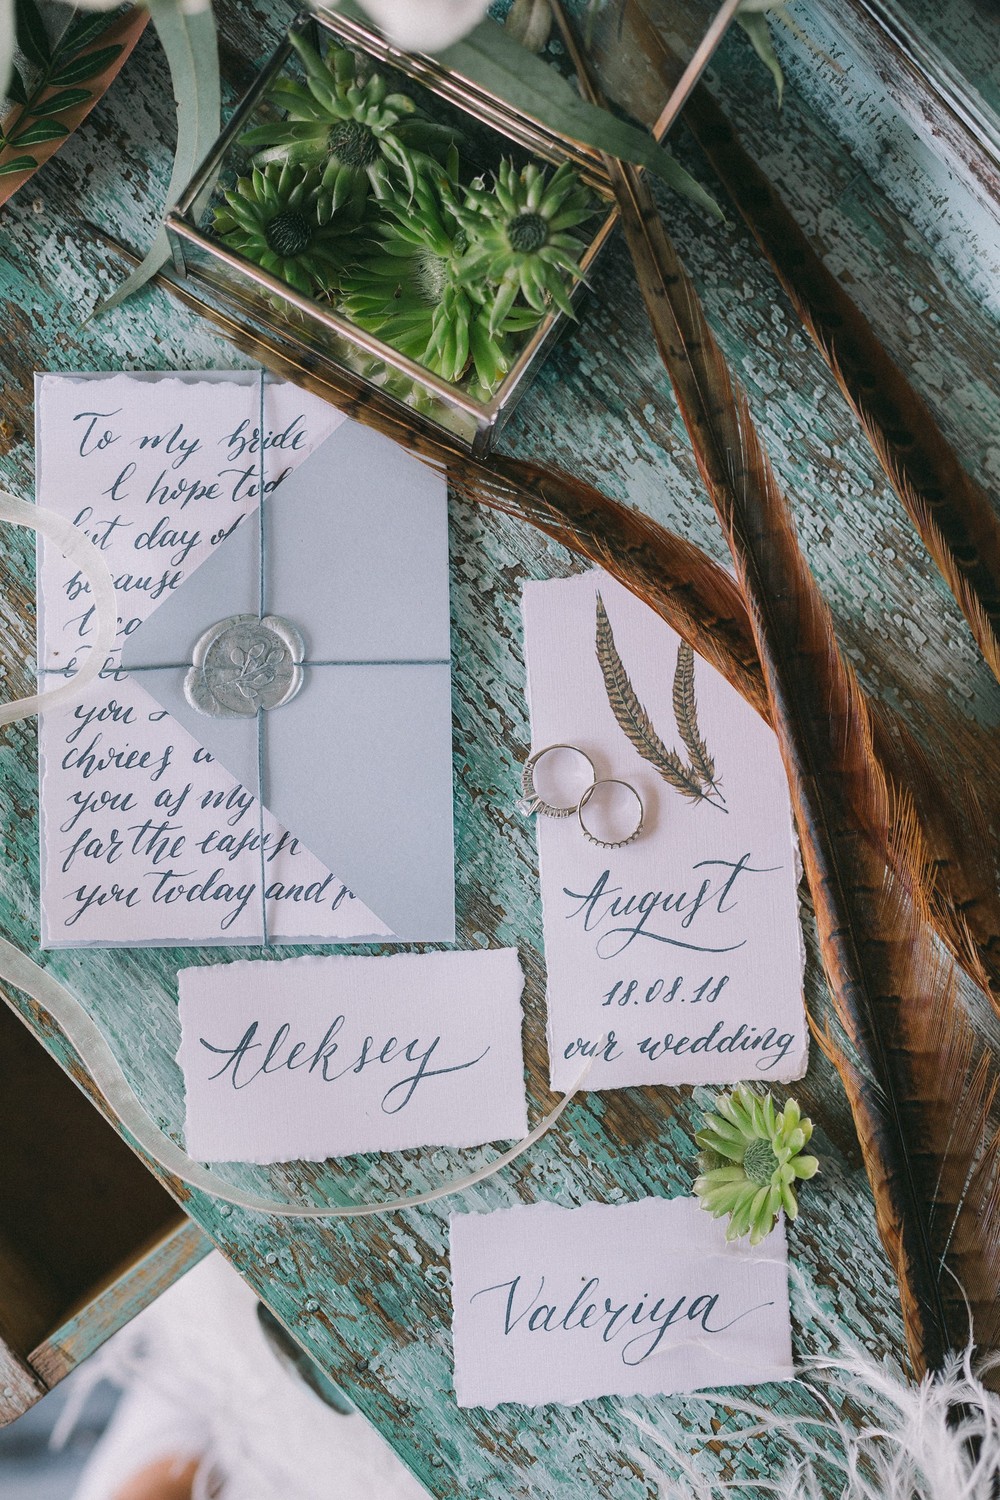 To my bride
I hope tod
but day of
because
I ca
you
choices a
you as my
far the easies
you today and f
August
18.08.18
our wedding
Aleksey
Valeriya